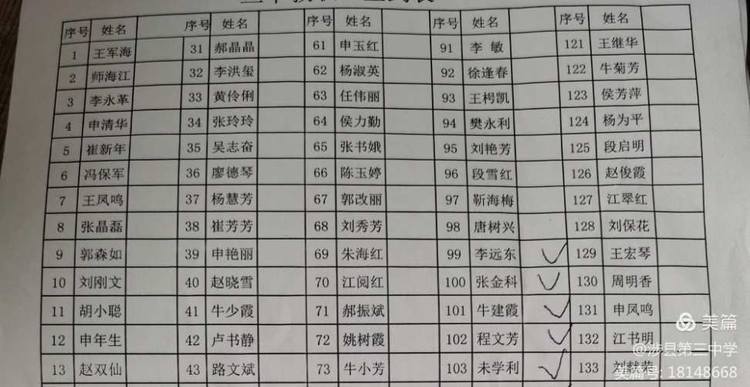 序号 姓名 序号 姓名 序号 姓名 序号 姓名 序号 姓名
1 王军海 31 郝晶晶 61 申玉红 91 李敏 121 王继华
2 师海江 32 李洪玺 62 杨淑英 92 徐逢春 122 牛菊芳
3 李永革 33 黄伶俐 63 任伟丽 93 王枵凯 123 侯芳萍
4 申清华 34 张玲玲 64 侯力勤 94 樊永利 124 杨为平
5 崔新年 35 吴志奋 65 张书娥 95 刘艳芳 125 段启明
6 冯保军 36 廖德琴 66 陈玉婷 96 段雪红 126 赵俊霞
7 王凤鸣 37 杨慧芳 67 郭改丽 97 靳海梅 127 江翠红
8 张晶磊 38 崔芳芳 68 刘秀芳 98 唐树兴 128 刘保花
9 郭森如 39 申艳丽 69 朱海红 99 李远东 129 王宏琴
10 刘刚文 40 赵晓雪 70 江阅红 100 张金科 130 周明香
11 胡小聪 41 牛少霞 71 郝振斌 101 牛建霞 131 申凤鸣
12 申年生 42 卢书静 72 姚树霞 102 程文芳 132 江书明
13 赵双仙 43 路文斌 73 牛小芳 103 未学利 133
美篇
@涉县第三中学
美篇号: 18148668